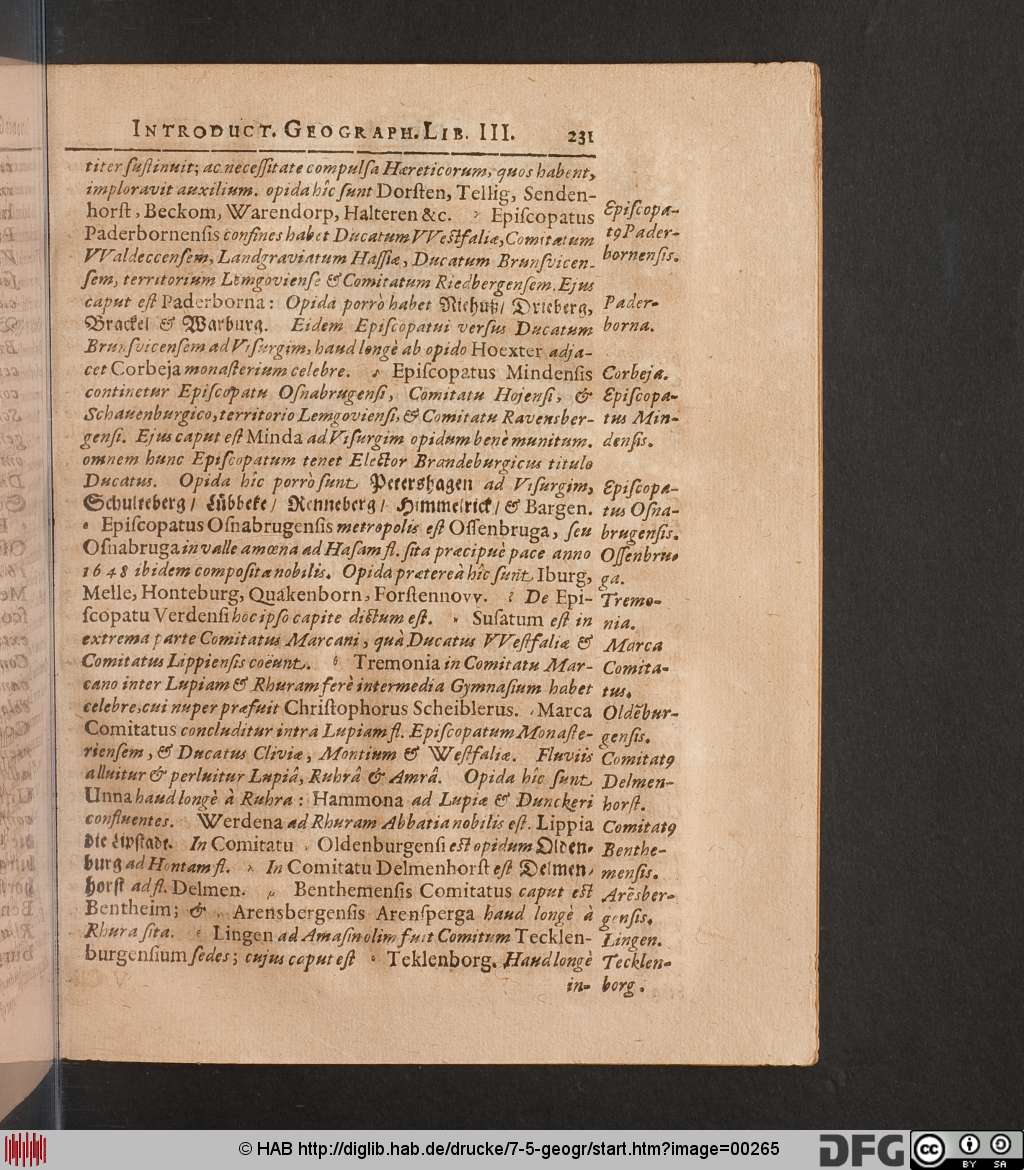 INTRODUCT. GEOGRAPH. LIB. III. 231
titer ſuſtinuit; ac neceſſitate compulſa Hæreticorum, quos habent,
imploravit auxilium. opida hîc ſunt Dorſten, Tellig, Senden-
horſt, Beckom, Warendorp, Halteren &c. Epiſcopatus
Paderbornenſis confines habet Ducatum VVeſtfaliæ, Comitatum
VValdeccenſem, Landgraviatum Haſſiæ, Ducatum Brunſvicen-
ſem, territorium Lemgovienſe & Comitatum Riedbergenſem. Ejus
caput eſt Paderborna: Opida porrò habet Niehuß/ Drieberg,
Brackel & Warburg. Eidem Epiſcopatui verſus Ducatum
Brunſvicenſem ad Viſurgim, haud longè ab opido Hoexter adja-
cet Corbeja monaſterium celebre. Epiſcopatus Mindenſis
continetur Epiſcopatu Oſnabrugenſi, Comitatu Hojenſi, &
Schauenburgico, territorio Lemgovienſi, & Comitatu Ravensber-
genſi. Ejus caput eſt Minda ad Viſurgim opidum benè munitum.
omnem hunc Epiſcopatum tenet Elector Brandeburgicus titulo
Ducatus. Opida hîc porrò ſunt Petershagen ad Viſurgim,
Schulteberg/ Lübbeke/ Renneberg/ Himmelrick/ & Bargen.
Epiſcopatus Oſnabrugenſis metropolis eſt Oſſenbruga, ſeu
Oſnabruga in valle amœna ad Haſam fl. ſita præcipuè pace anno
1648 ibidem compoſita nobilis. Opida prætereà hîc ſunt Iburg,
Melle, Honteburg, Quakenborn, Forſtennovv. De Epi-
ſcopatu Verdenſi hoc ipſo capite dictum eſt. Suſatum eſt in
extrema parte Comitatus Marcani, quà Ducatus VVeſtfaliæ &
Comitatus Lippienſis coëunt. Tremonia in Comitatu Mar-
cano inter Lupiam & Rhuram ferè intermedia Gymnaſium habet
celebre, cui nuper præfuit Chriſtophorus Scheiblerus. Marca
Comitatus concluditur intra Lupiam fl. Epiſcopatum Monaſte-
rienſem, & Ducatus Cliviæ, Montium & Weſtfaliæ. Fluviis
alluitur & perluitur Lupiâ, Ruhrâ & Amrâ. Opida hîc ſunt
Unna haud longè à Ruhra: Hammona ad Lupiæ & Dunckeri
confluentes. Werdena ad Rhuram Abbatia nobilis eſt. Lippia
die Lipſtadt. In Comitatu Oldenburgenſi eſt opidum Olden-
burg ad Hontam fl. In Comitatu Delmenhorſt eſt Delmen-
horſt ad fl. Delmen. Benthemenſis Comitatus caput eſt
Bentheim; & Arensbergenſis Arenſperga haud longè à
Rhura ſita. Lingen ad Amaſin olim fuit Comitum Tecklen-
burgenſium ſedes; cujus caput eſt Teklenborg. Haud longè
in-
Epiſcopa-
tꝰ Pader-
bornenſis.
Pader-
borna.
Corbeja.
Epiſcopa-
tus Min-
denſis.
Epiſcopa-
tus Oſna-
brugenſis.
Oſſenbru-
ga.
Tremo-
nia.
Marca
Comita-
tus.
Oldẽbur-
genſis.
Comitatꝰ
Delmen-
horſt.
Comitatꝰ
Benthe-
menſis.
Arẽsber-
genſis.
Lingen.
Tecklen-
borg.
© HAB http://diglib.hab.de/drucke/7-5-geogr/start.htm?image=00265
DFG
cc
BY SA